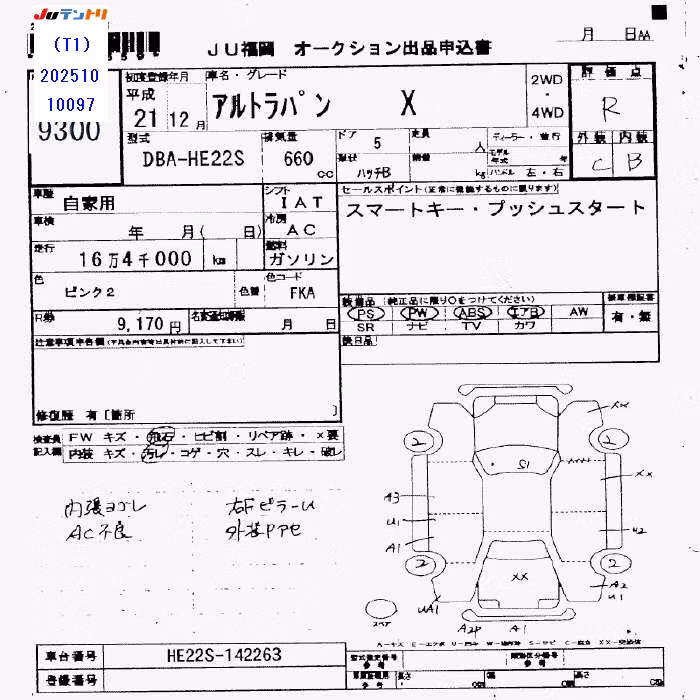 JUテントリ
(T1)
202510
10097
9300
JU福岡 オークション出品申込書
月 日AA
初度登録年月
平成
21 12月
車名・グレード
アルトラパン X
2WD
・
4WD
評価点
R
外装 内装
C B
型式
DBA-HE22S
排気量
660 cc
ドア 5
定員 人
形状 ハッチB
積載 kg
ディーラー・並行
モデル年式 年
ハンドル 左・右
車歴
自家用
シフト
IAT
セールスポイント(正常に稼働するものに限ります)
スマートキー・プッシュスタート
車検
年 月( 日)
冷房
AC
走行
16万4千000 km
燃料
ガソリン
色
ピンク2
色替
色コード
FKA
R券
9,170円
名変通知期限
月 日
装備品 (純正品に限り○をつけてください)
PS PW ABS エアB AW
SR ナビ TV カワ
新車保証書
有・無
後日品
注意事項申告欄
修復歴 有〔箇所 〕
検査員
記入欄
FW キズ・飛石・ヒビ割・リペア跡・×要
内装 キズ・汚レ・コゲ・穴・スレ・キレ・破レ
内張ヨゴレ
AC不良
右FピラーU
外装PPセ
XX
2 2
S1
A3
XX
U1
A1
2 2
XX
A2
U1
UA1
スペア
A2P A1
車台番号
HE22S-142263
登録番号
型式指定番号
参考
類別区分番号
参考
長さ cm
幅 cm
高さ cm